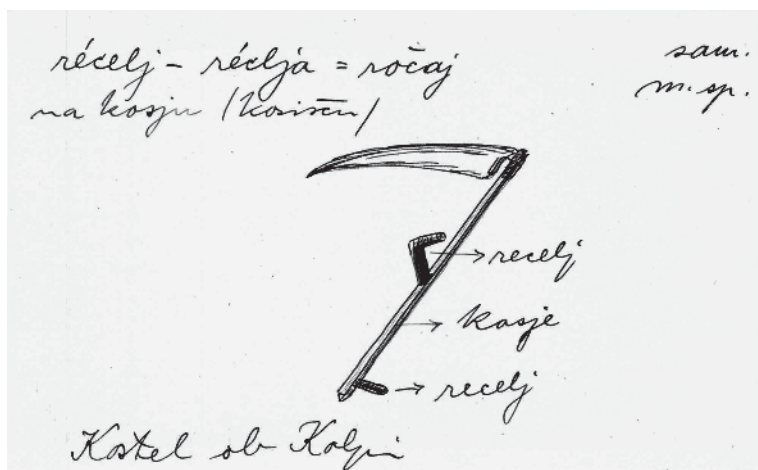 récelj - réclja = ročaj
na kosju (kosišču)
sam.
m. sp.
recelj
kosje
recelj
Kostel ob Kolpi